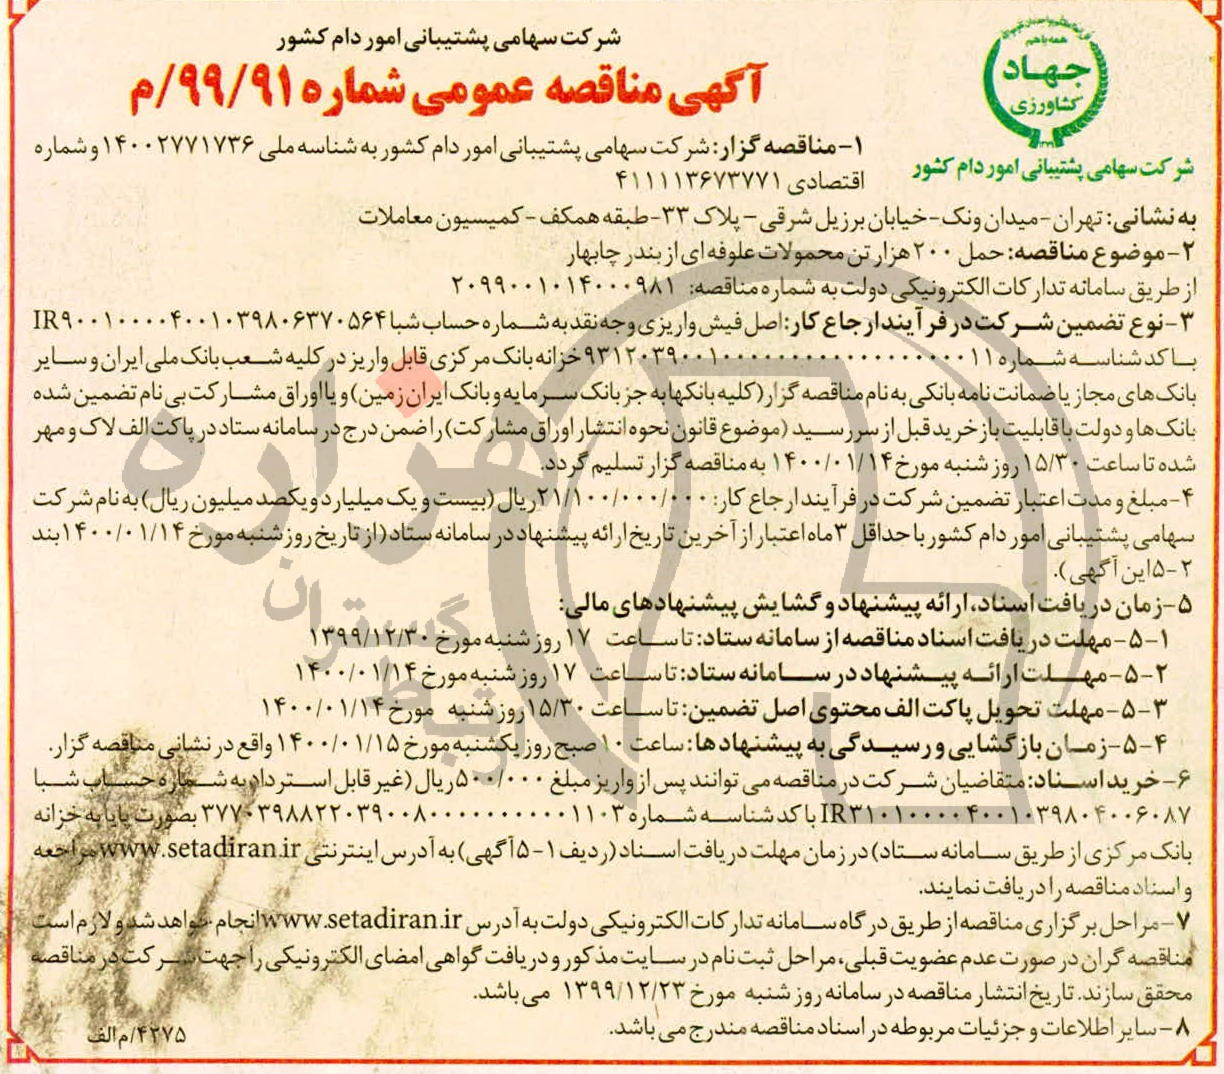 همه با هم
جهاد
کشاورزی
شرکت سهامی پشتیبانی امور دام کشور
شرکت سهامی پشتیبانی امور دام کشور
آگهی مناقصه عمومی شماره ۹۹/۹۱/م
۱-مناقصه گزار: شرکت سهامی پشتیبانی امور دام کشور به شناسه ملی ۱۴۰۰۲۷۷۱۷۳۶ و شماره
اقتصادی ۴۱۱۱۱۳۶۷۳۷۷۱
به نشانی: تهران-میدان ونک-خیابان برزیل شرقی-پلاک ۳۳-طبقه همکف-کمیسیون معاملات
۲-موضوع مناقصه: حمل ۲۰۰ هزار تن محمولات علوفه ای از بندر چابهار
از طریق سامانه تدارکات الکترونیکی دولت به شماره مناقصه: ۲۰۹۹۰۰۱۰۱۴۰۰۰۹۸۱
۳-نوع تضمین شرکت در فرآیند ارجاع کار: اصل فیش واریزی وجه نقد به شماره حساب شبا IR۹۰۰۱۰۰۰۰۴۰۰۱۰۳۹۸۰۶۳۷۰۵۶۴
با کد شناسه شماره خزانه بانک مرکزی قابل واریز در کلیه شعب بانک ملی ایران و سایر
بانک های مجاز یا ضمانت نامه بانکی به نام مناقصه گزار (کلیه بانکها به جز بانک سرمایه و بانک ایران زمین) و یا اوراق مشارکت بی نام تضمین شده
بانک ها و دولت با قابلیت باز خرید قبل از سررسید (موضوع قانون نحوه انتشار اوراق مشارکت) را ضمن درج در سامانه ستاد در پاکت الف لاک و مهر
شده تا ساعت ۱۵/۳۰ روز شنبه مورخ ۱۴۰۰/۰۱/۱۴ به مناقصه گزار تسلیم گردد.
۴-مبلغ و مدت اعتبار تضمین شرکت در فرآیند ارجاع کار: ۲۱/۱۰۰/۰۰۰/۰۰۰ ریال (بیست و یک میلیارد و یکصد میلیون ریال) به نام شرکت
سهامی پشتیبانی امور دام کشور با حداقل ۳ ماه اعتبار از آخرین تاریخ ارائه پیشنهاد در سامانه ستاد (از تاریخ روز شنبه مورخ ۱۴۰۰/۰۱/۱۴ بند
۵-۲ این آگهی).
۵-زمان دریافت اسناد، ارائه پیشنهاد و گشایش پیشنهادهای مالی:
۵-۱-مهلت دریافت اسناد مناقصه از سامانه ستاد: تا ساعت ۱۷ روز شنبه مورخ ۱۳۹۹/۱۲/۳۰
۵-۲-مهلت ارائه پیشنهاد در سامانه ستاد: تا ساعت ۱۷ روز شنبه مورخ ۱۴۰۰/۰۱/۱۴
۵-۳-مهلت تحویل پاکت الف محتوی اصل تضمین: تا ساعت ۱۵/۳۰ روز شنبه مورخ ۱۴۰۰/۰۱/۱۴
۵-۴-زمان بازگشایی و رسیدگی به پیشنهادها: ساعت ۱۰ صبح روز یکشنبه مورخ ۱۴۰۰/۰۱/۱۵ واقع در نشانی مناقصه گزار.
۶-خرید اسناد: متقاضیان شرکت در مناقصه می توانند پس از واریز مبلغ ۵۰۰/۰۰۰ ریال (غیر قابل استرداد به شماره حساب شبا
IR۳۱۰۱۰۰۰۰۴۰۰۱۰۳۹۸۰۴۰۰۶۰۸۷ با کد شناسه شماره بصورت پایا به خزانه
بانک مرکزی از طریق سامانه ستاد) در زمان مهلت دریافت اسناد (ردیف ۱-۵ آگهی) به آدرس اینترنتی www.setadiran.ir مراجعه
و اسناد مناقصه را دریافت نمایند.
۷-مراحل برگزاری مناقصه از طریق درگاه سامانه تدارکات الکترونیکی دولت به آدرس www.setadiran.ir انجام خواهد شد و لازم است
مناقصه گران در صورت عدم عضویت قبلی، مراحل ثبت نام در سایت مذکور و دریافت گواهی امضای الکترونیکی را جهت شرکت در مناقصه
محقق سازند. تاریخ انتشار مناقصه در سامانه روز شنبه مورخ ۱۳۹۹/۱۲/۲۳ می باشد.
۸-سایر اطلاعات و جزئیات مربوطه در اسناد مناقصه مندرج می باشد.
۴۲۷۵/م الف
هزاره
گستران